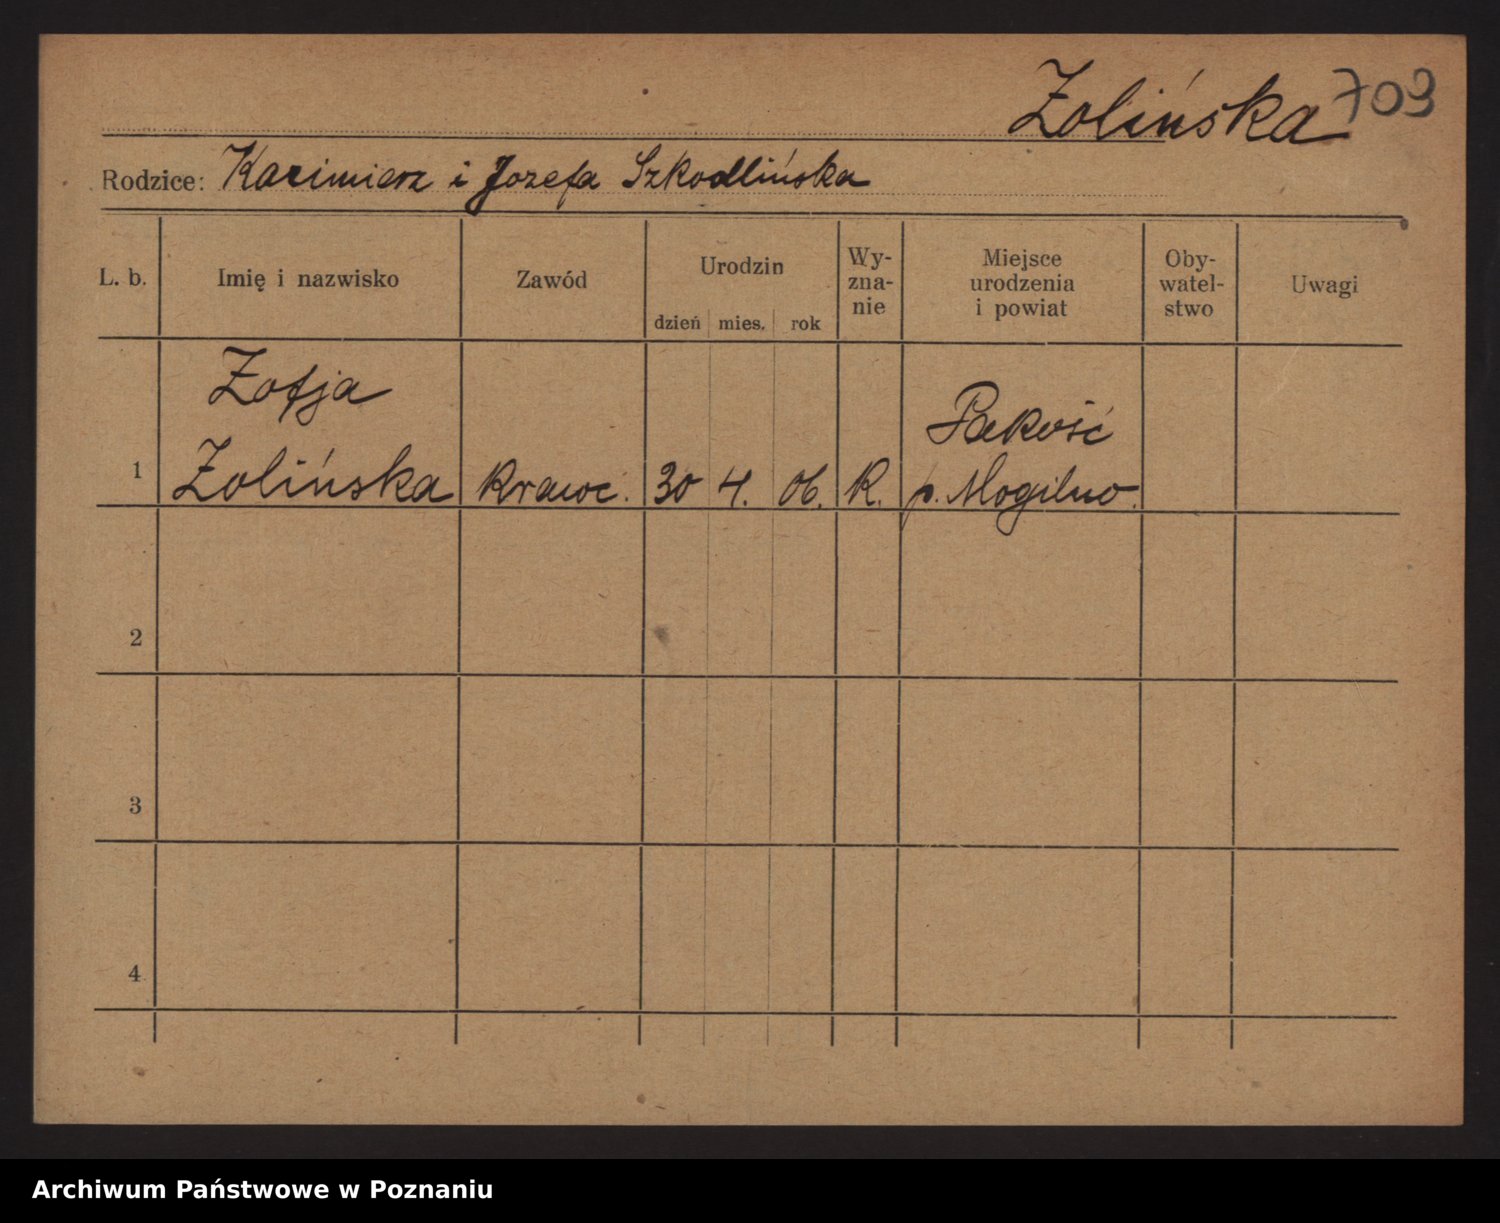 Zolińska 709
Rodzice: Kazimierz i Jozefa Szkodlińska
L. b. Imię i nazwisko Zawód Urodzin dzień mies. rok Wy-zna-nie Miejsce urodzenia i powiat Oby-watel-stwo Uwagi
Zofja
Pakość
1 Zolińska krawc. 30 4. 06. K. p. Mogilno.
2
3
4
Archiwum Państwowe w Poznaniu